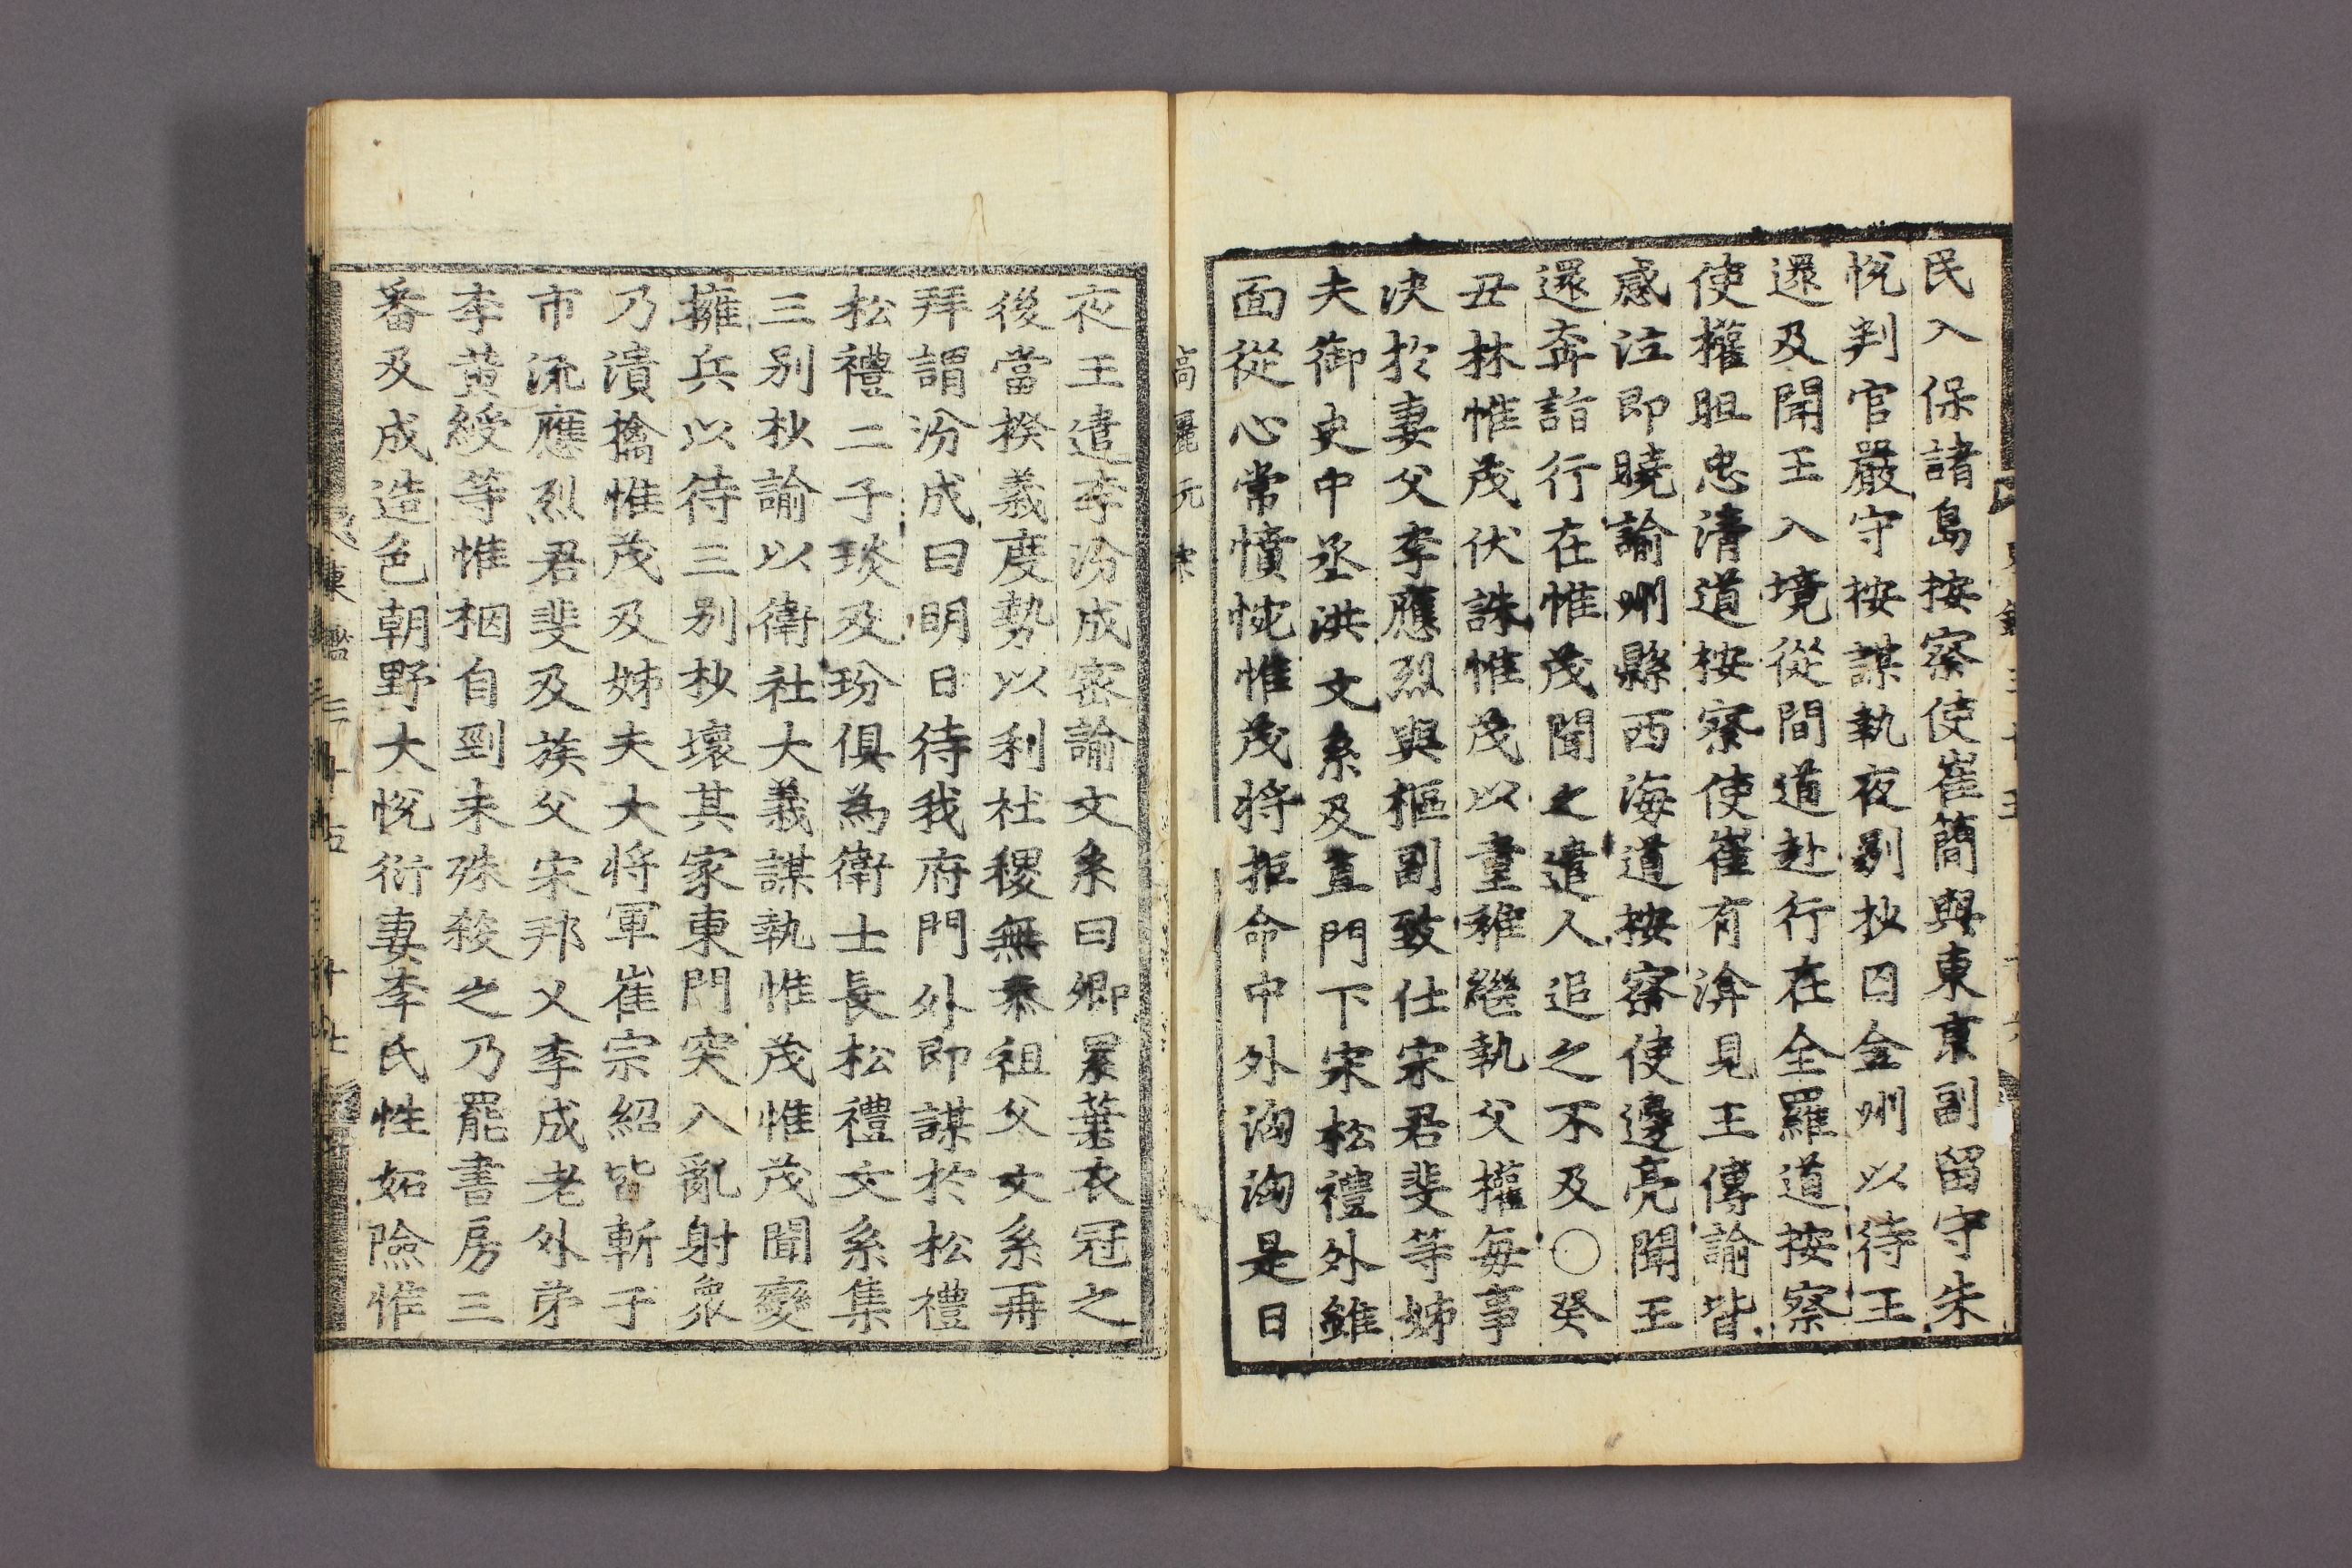 民入保諸島按察使崔簡與東京副留守朱
悅判官嚴守按謀執夜別抄囚金州以待王
還及聞王入境從間道赴行在全羅道按察
使權㫜忠淸道按察使崔有渰見王傳諭皆
感泣即曉諭州縣西海道按察使邊亮聞王
還奔詣行在惟茂聞之遣人追之不及〇癸
丑林惟茂伏誅惟茂以童稚繼執父權每事
决扵妻父李應烈與樞副致仕宋君斐等姊
夫御史中丞洪文系及直門下宋松禮外雖
面從心常憤惋惟茂將拒命中外洶洶是日
高麗元宗
夜王遣李汾成密諭文系曰卿累葉衣冠之
後當揆義度勢以利社稷無忝祖父文系再
拜謂汾成曰明日待我府門外即謀扵松禮
松禮二子琰及玢俱為衛士長松禮文系集
三別抄諭以衛社大義謀執惟茂惟茂聞變
擁兵以待三別抄壞其家東門突入亂射衆
乃潰擒惟茂及姊夫大將軍崔宗紹皆斬于
市流應烈君斐及族父宋邦乂李成老外弟
李黃綬等惟栶自剄未殊殺之乃罷書房三
番及成造色朝野大悅衍妻李氏性妬險惟
東鑑三十五